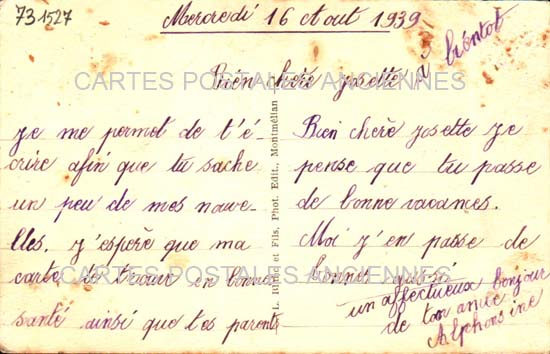 73 1527
Mercredi 16 Aout 1939
à bientot
Bien chère josette
CARTES POSTALES ANCIENNES
je me permet de t'é-
crire afin que tu sache
un peu de mes nouve-
lles. j'espère que ma
carte te trouve en bonne
santé ainsi que tes parents
L. Blanc et Fils, Phot. Edit., Montmélian
Bien chère josette je
pense que tu passe
de bonne vacances.
Moi j'en passe de
bonnes aussi
un affectueux bonjour
de ton amie
Alphonsine
CARTES POSTALES ANCIENNES